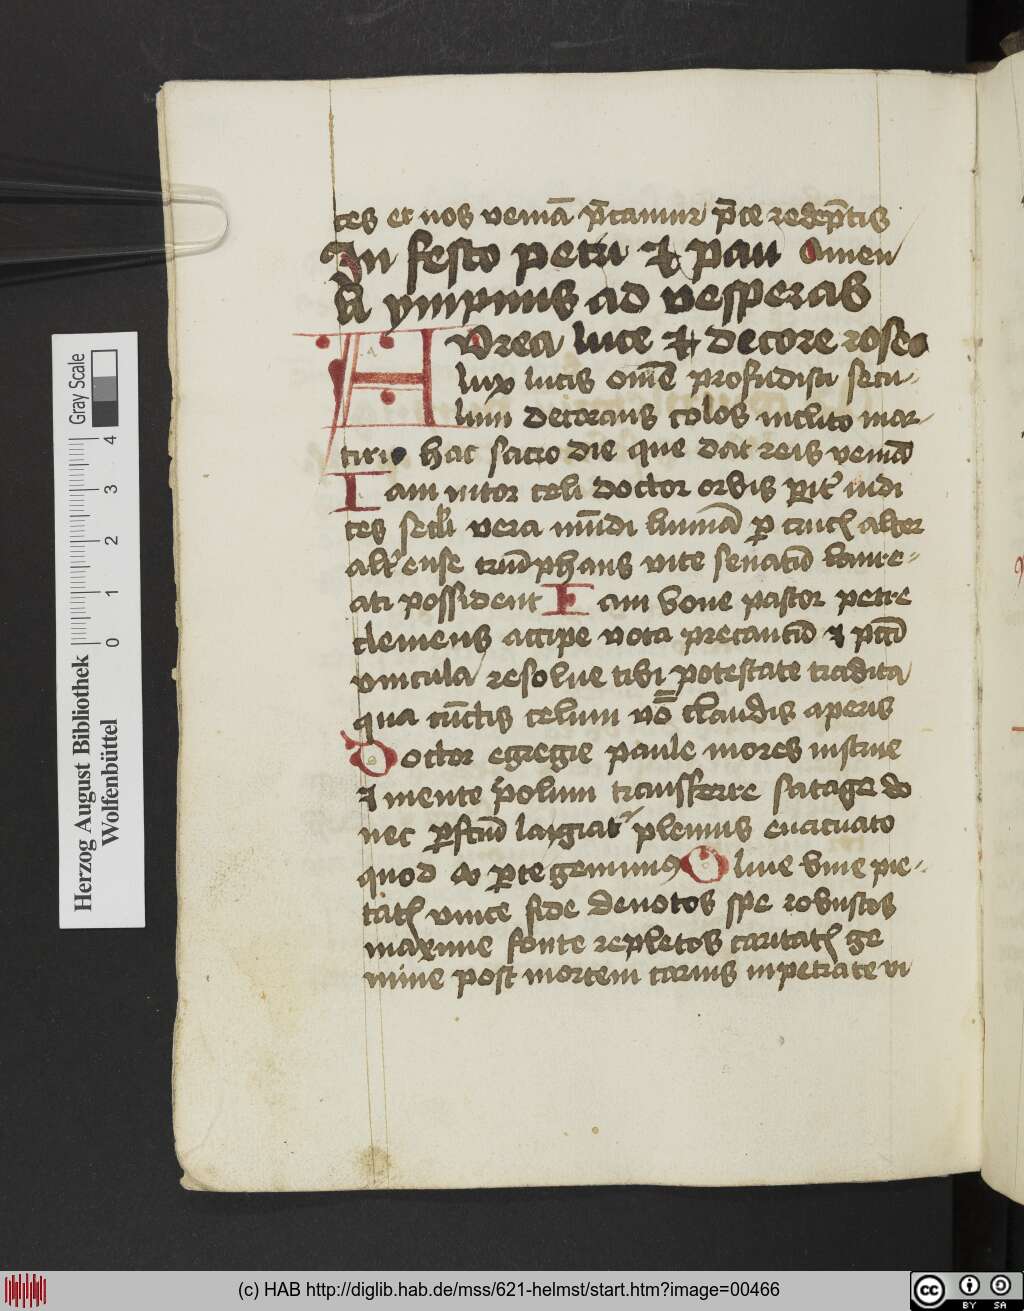 ces et nos veniā p̄camur p̄ce redēptis
In festo petri ⁊ pau Amen
Hympnus ad vesperas
Aurea luce ⁊ decore roseo
lux lucis om̄e profudisti secu-
lum decorans celos inclito mar-
tirio hac sacro die que dat reis veniā
Ianitor celi doctor orbis pit' iudi
ces secli vera mūdi lumīa p cruc̄ alter
alt' ense triūphans vite senatū laure-
ati possident Iam bone pastor petre
clemens accipe vota precantiū ⁊ pctī
vincula resolue tibi potestate tradita
qua cūctis celum vb̄o claudis aperis
Doctor egregie paule mores instrue
⁊ mente polum transferre satage do
nec pfctū largiat' plenius euacuato
quod ex pte gerimus Oliue bine pie-
tat̄ unice fide deuotos spe robustos
maxime fonte repletos caritat̄ ge
mine post mortem carnis inpetrate vi
Herzog August Bibliothek
Wolfenbüttel
0 1 2 3 4
Gray Scale
(c) HAB http://diglib.hab.de/mss/621-helmst/start.htm?image=00466
cc BY SA